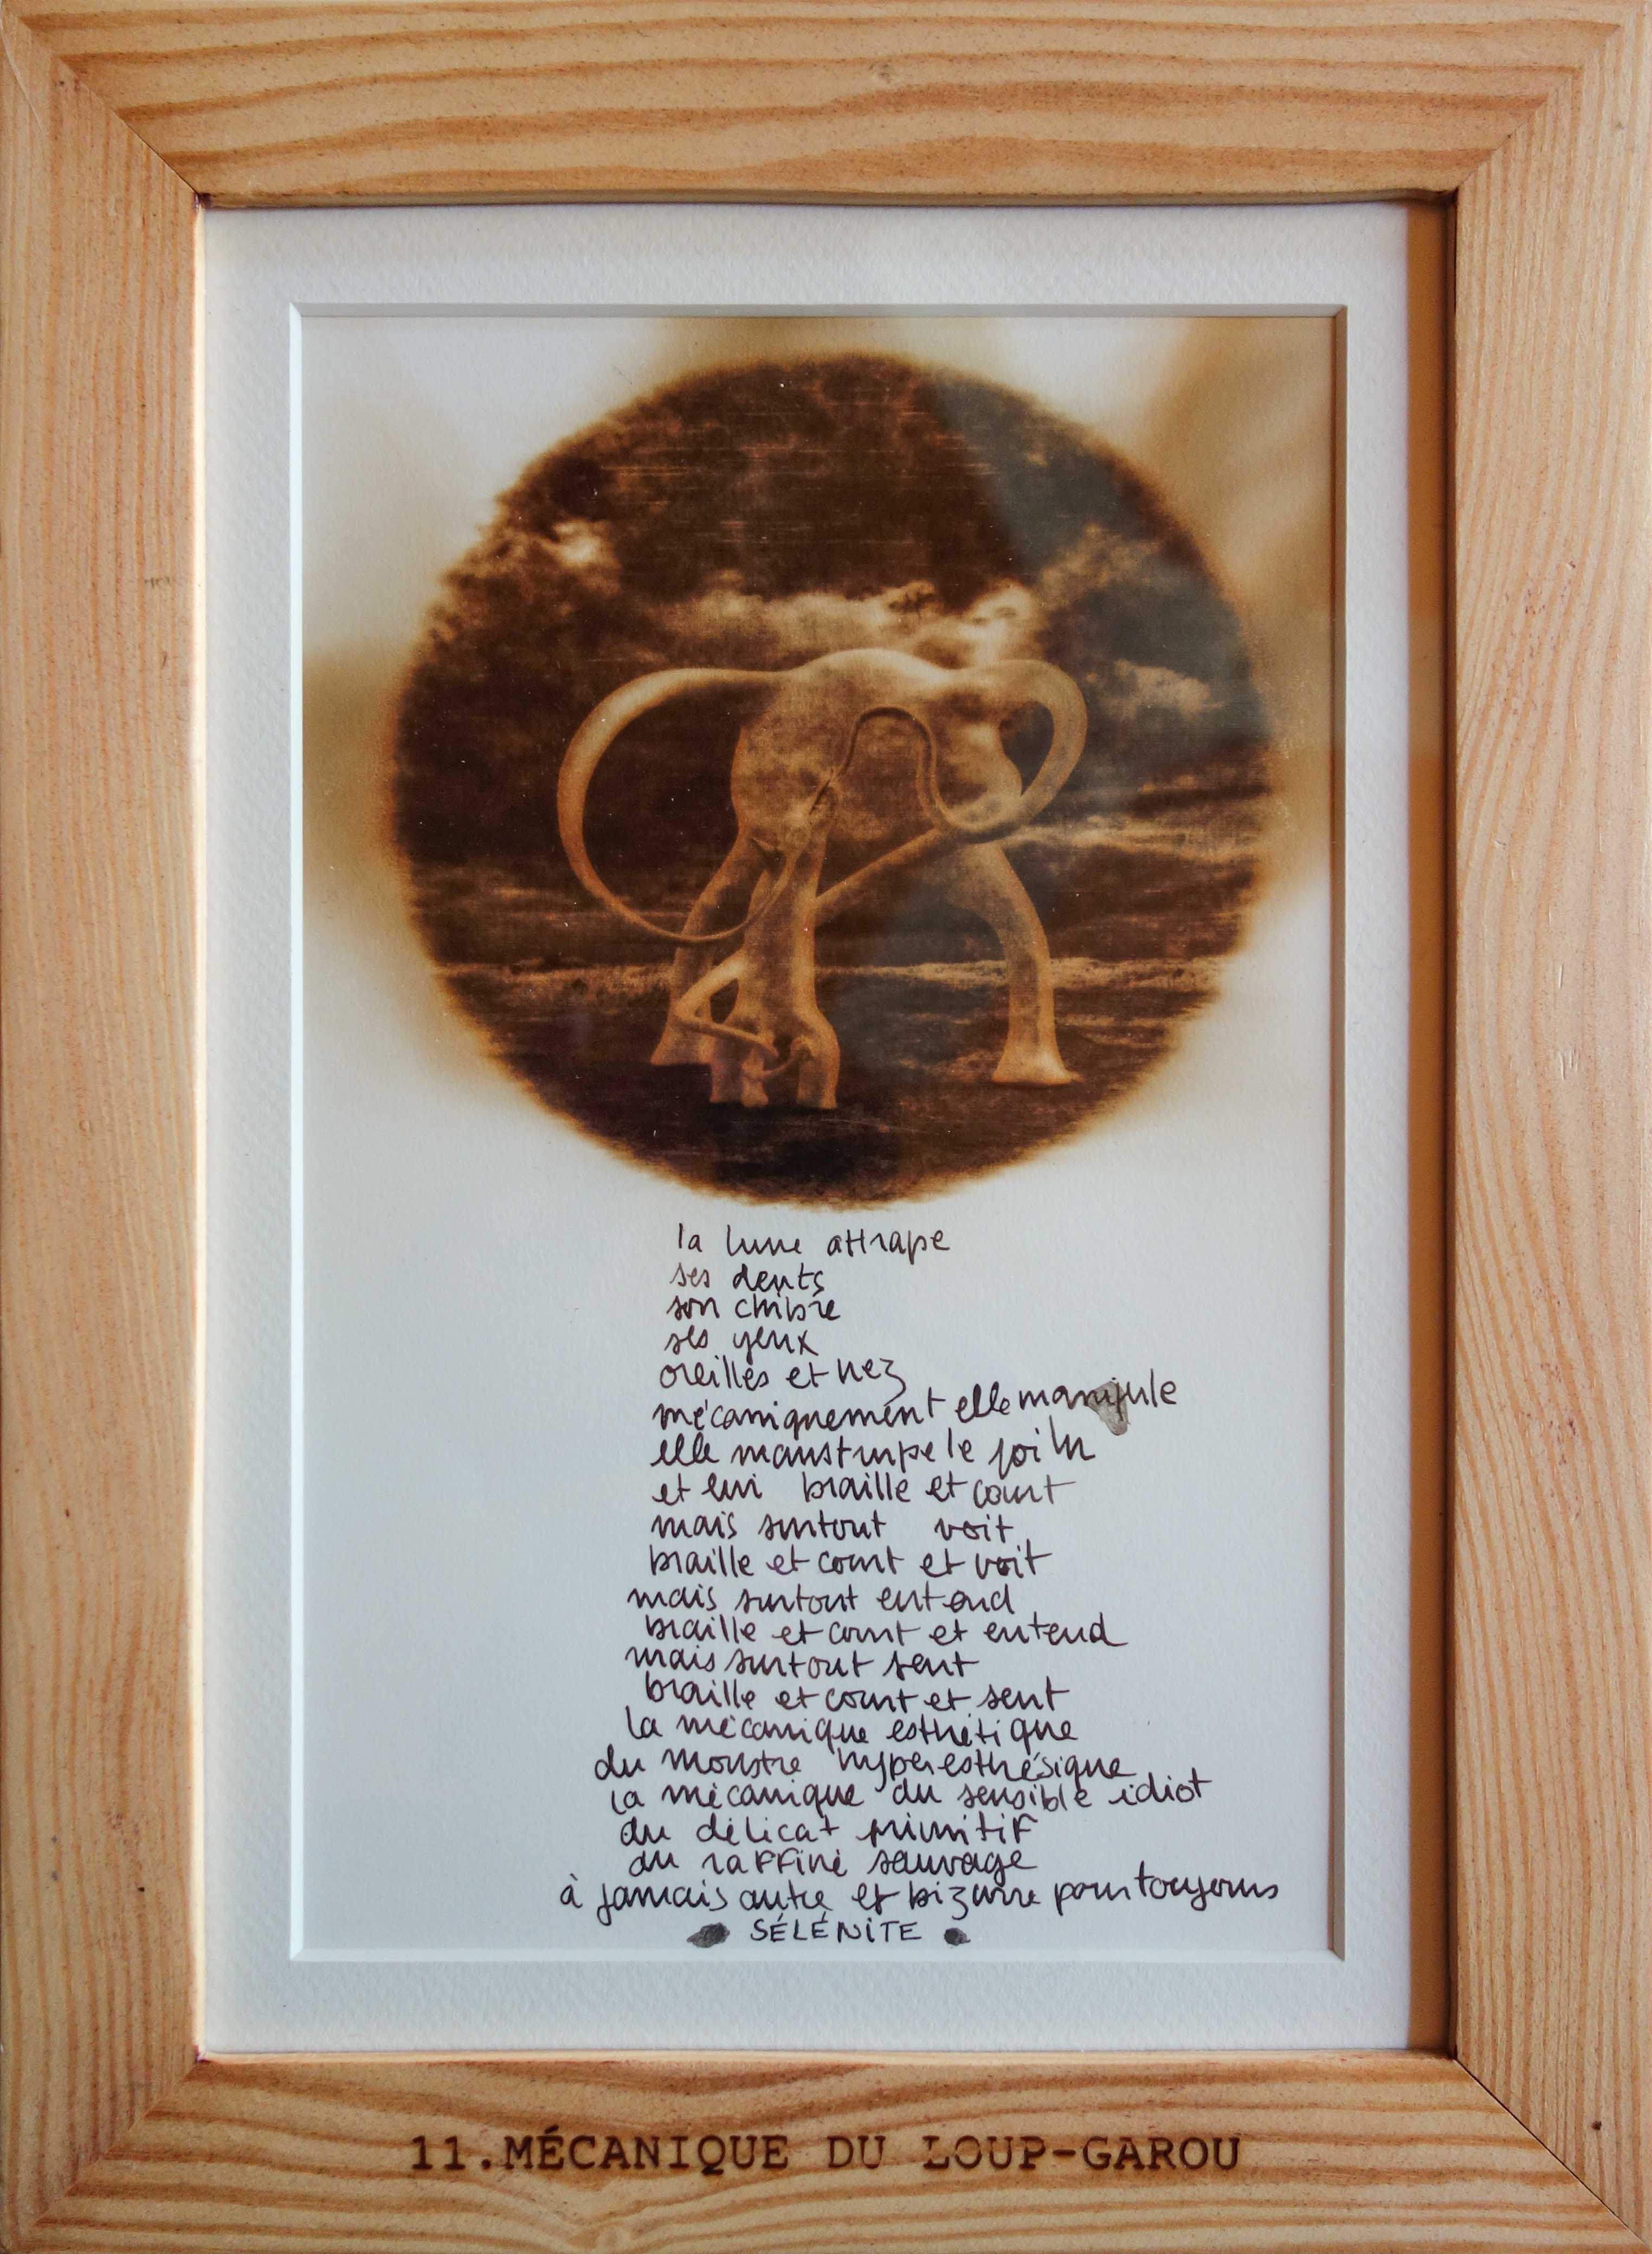 la lune attrape
ses dents
son chibre
ses yeux
oreilles et nez
mécaniquement elle manipule
elle manstrupe le poilu
et lui braille et court
mais surtout voit
braille et court et voit
mais surtout entend
braille et court et entend
mais surtout sent
braille et court et sent
la mécanique esthétique
du monstre hyperesthésique
la mécanique du sensible idiot
du délicat primitif
du raffiné sauvage
à jamais autre et bizarre pour toujours
SÉLÉNITE
11.MÉCANIQUE DU LOUP-GAROU